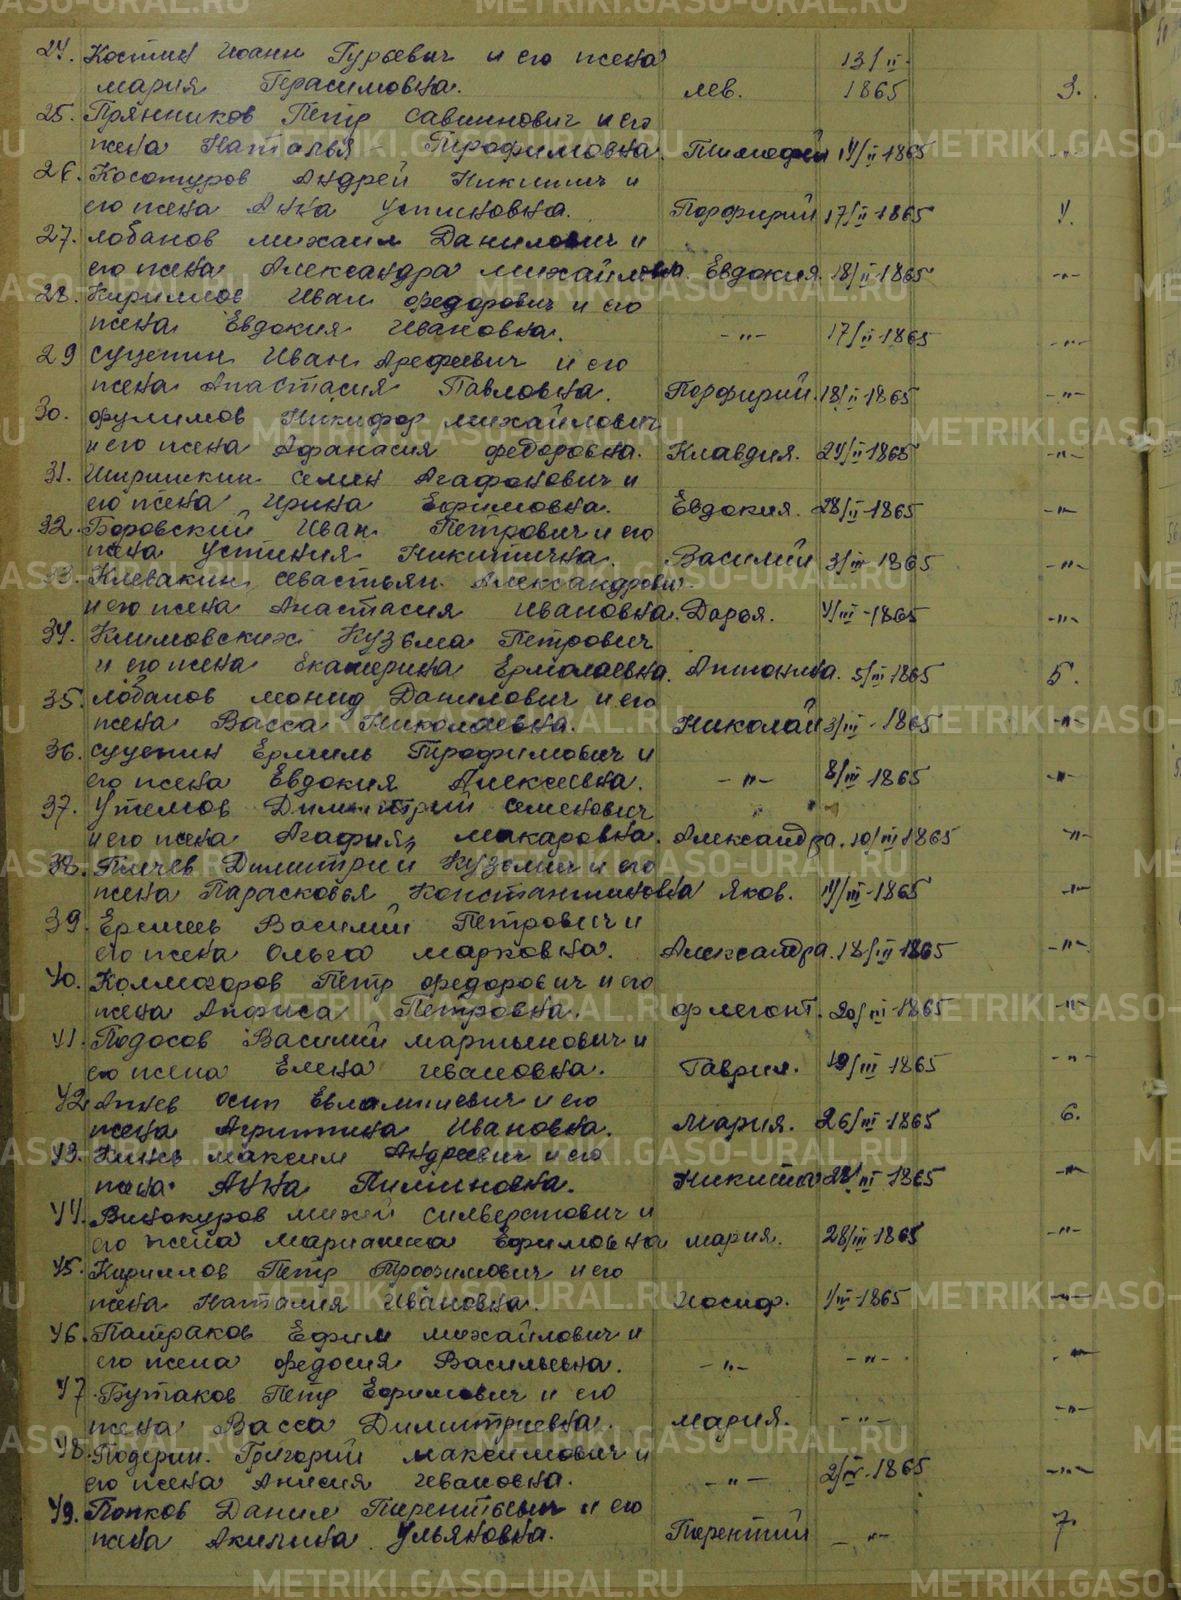 24. Костин Иоанн Гурьевич и его жена 13/II-
мария Герасимовна. лев. 1865 3.
25. Прянников Петр Саввинович и его
жена Наталья Трофимовна. Тимофей 14/II-1865 -"-
26. Косотуров Андрей Никитич и
его жена Анна Устиновна. Порфирий 17/II-1865 4.
27. лобанов михаил Данилович и
его жена Александра михайловна. Евдокия. 18/II-1865 -"-
28. Кириллов Иван федорович и его
жена Евдокия Ивановна. -"- 17/II-1865 -"-
29 сущепин Иван Арефиевич и его
жена Анастасия Павловна. Порфирий. 18/II-1865 -"-
30. фулимов Никифор михайлович
и его жена Афанасия федоровна. Клавдия. 24/II-1865 -"-
31. Ширшкин семен Агафонович и
его жена Ирина Ефимовна. Евдокия. 28/II-1865 -"-
32. Боровский Иван Петрович и его
жена Устиния Никитична. Василий 3/III-1865 -"-
33. Клевакин севастьян Александрович
и его жена Анастасия ивановна. Дарья. 4/III-1865 -"-
34. Климовских Кузьма Петрович
и его жена Екатерина Ермолаевна. Антонина. 5/III 1865 5.
35. лобанов леонид Данилович и его
жена Васса Николаевна. Николай 3/III-1865 -"-
36. сущепин Ермиль Трофимович и
его жена Евдокия Алексеевна. -"- 8/III 1865 -"-
37. Утемов Димитрий семенович
и его жена Агафия макаровна. Александра. 10/III 1865 -"-
38. Пичев Димитрий Кузьмич и его
жена Парасковья Константиновна Яков. 14/III-1865 -"-
39. Еремеев Василий Петрович и
его жена Ольга марковна. Александра. 18/III 1865 -"-
40. Колмогоров Петр федорович и его
жена Анфиса Петровна. флегонт. 20/III-1865 -"-
41. Подосов Василий мартынович и
его жена Елена ивановна. Гаврил. 19/III 1865 -"-
42. Агиев осип Евлампиевич и его
жена Агриппина Ивановна. мария. 26/III 1865 6.
43. максим Андреевич и его
жена Анна Пименовна. Никита 28/III 1865 -"-
44. Винокуров михей силверстович и
его жена марианна Ефимовна мария. 28/III 1865 -"-
45. Кириллов Петр Трофимович и его
жена Наталия Ивановна. Иосиф. 1/III-1865 -"-
46. Патраков Ефим михайлович и
его жена федосия Васильевна. -"- -"- -"-
47. Бутаков Петр Ефимович и его
жена Васса Димитриевна. мария. -"- -"-
48. Подерин. Григорий максимович и
его жена Анисия ивановна. -"- 2/IV-1865 -"-
49. Попков Данил Терентьевич и его
жена Акилина Ульяновна. Терентий -"- 7.
METRIKI.GASO-URAL.RU